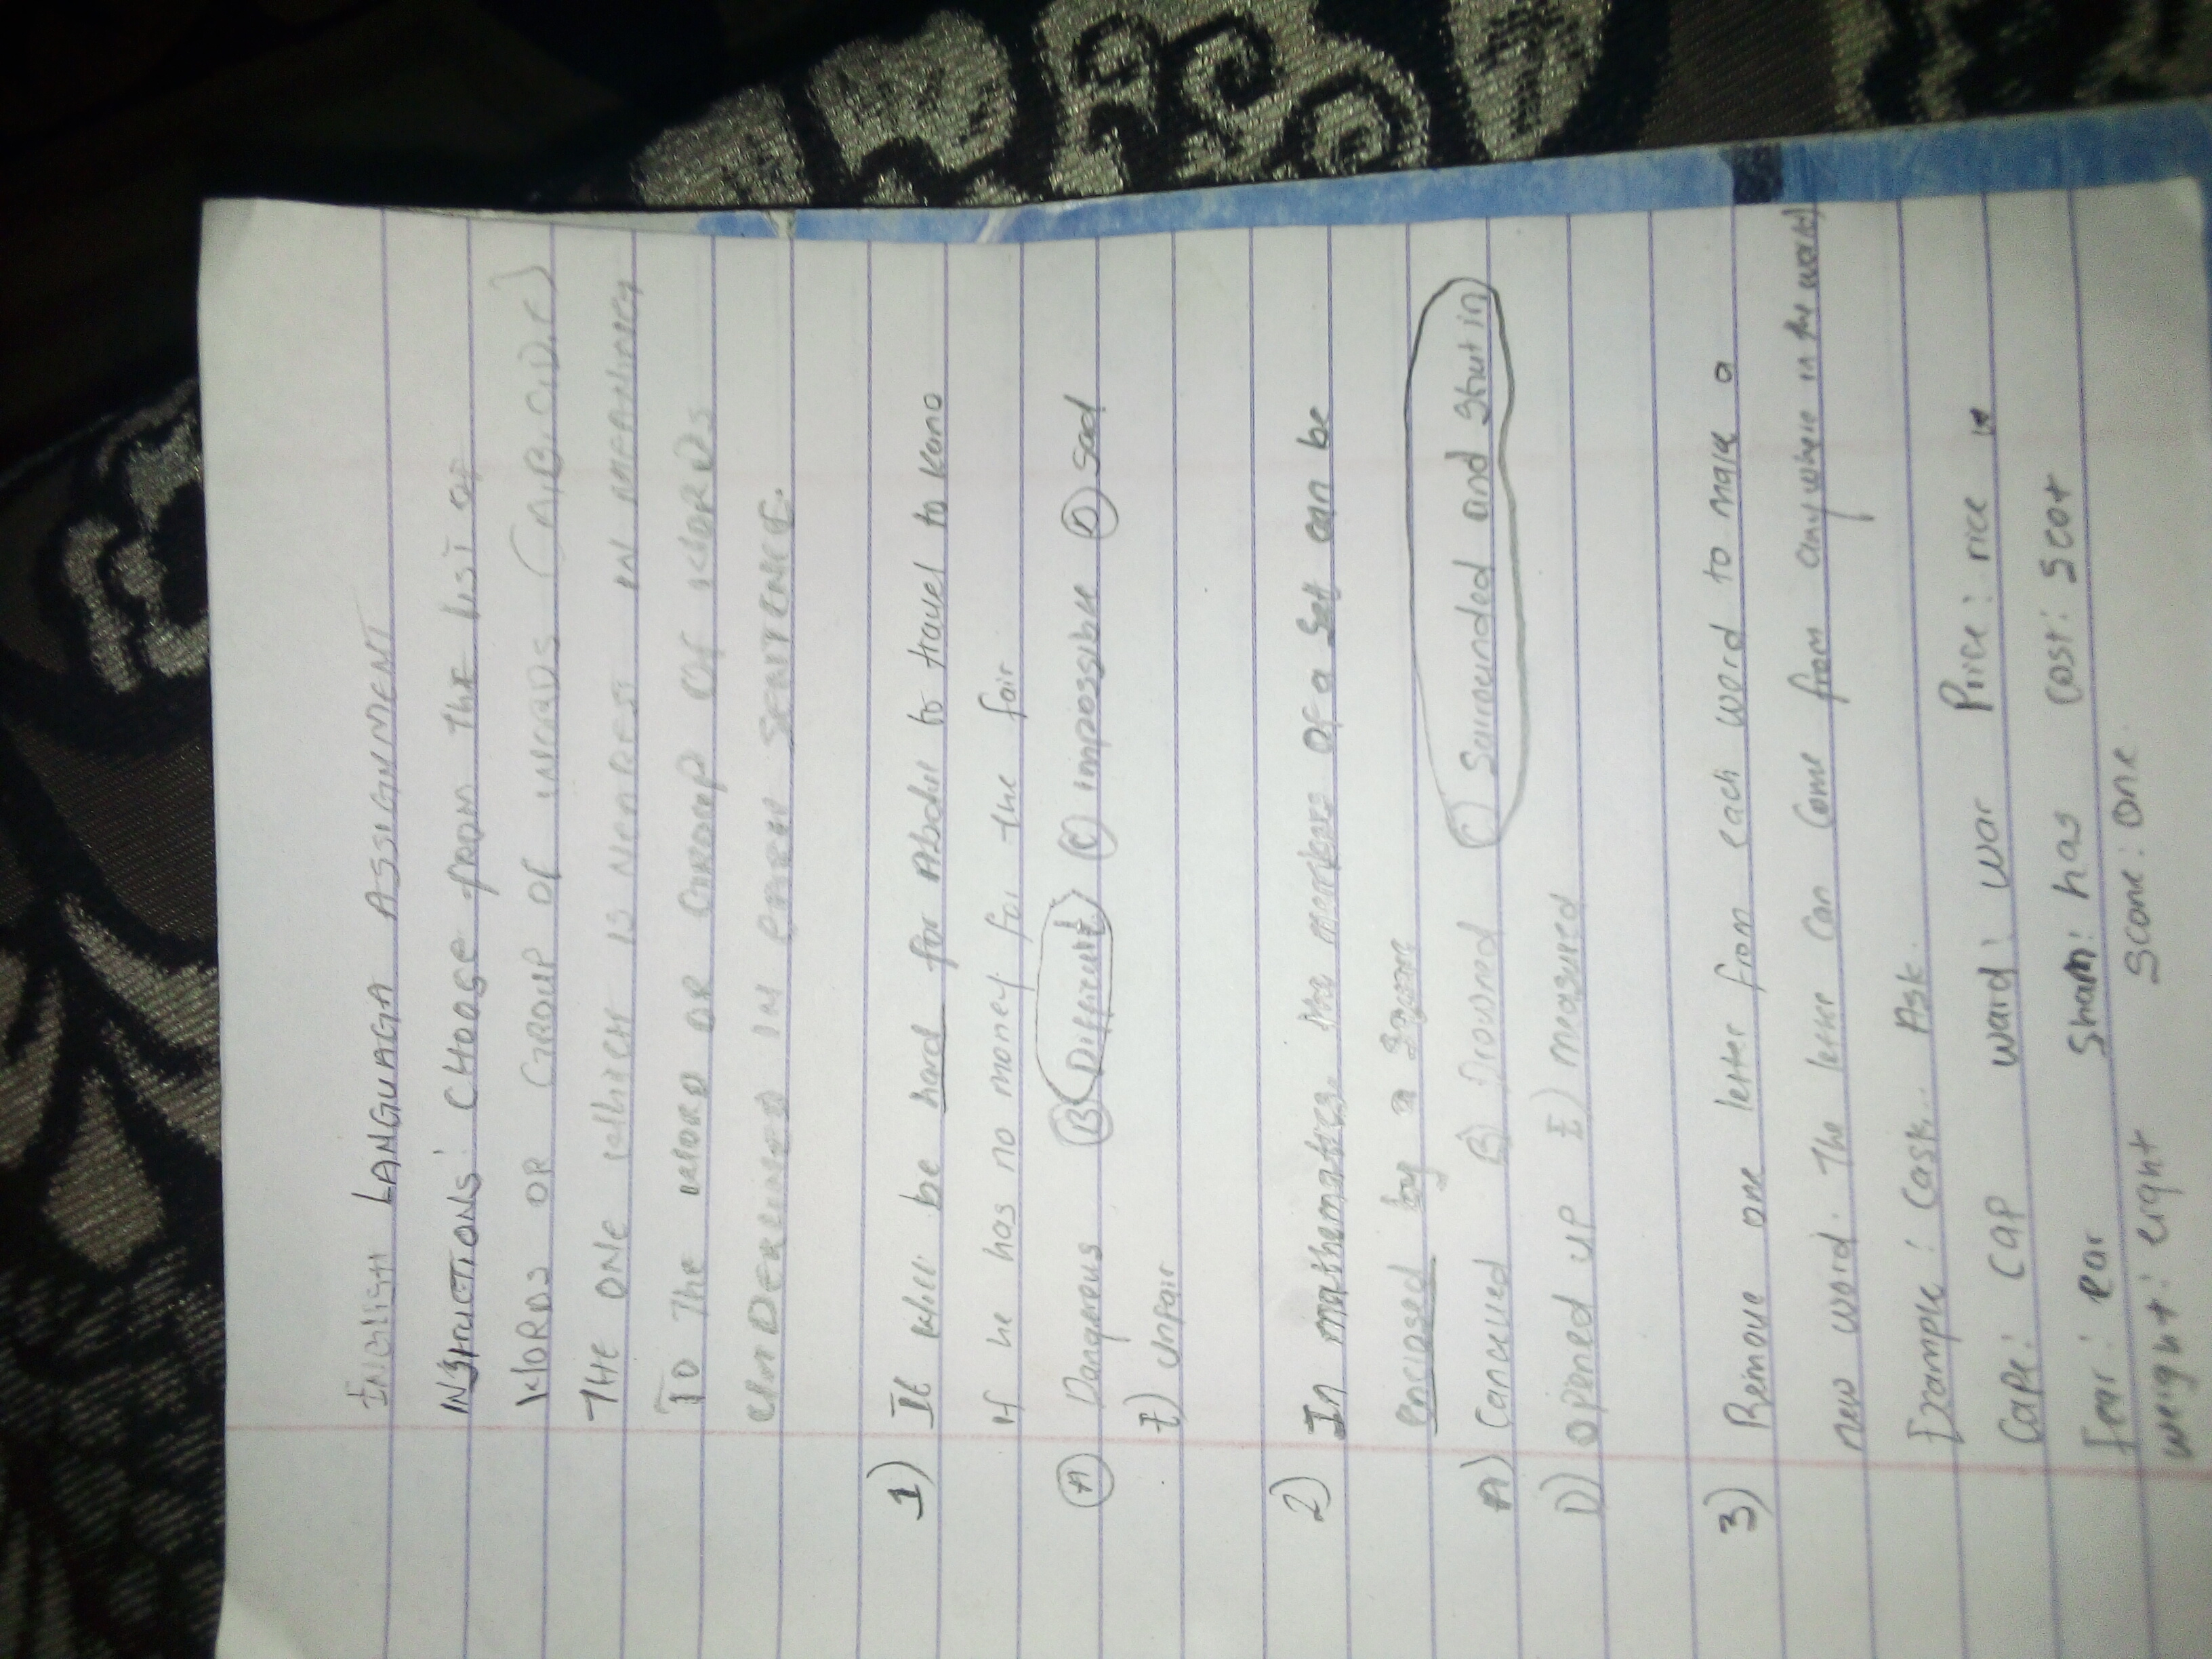 ENGLISH LANGUAGA ASSIGNMENT
INSTRUCTIONS: CHOOSE from THE LIST OF
WORDS OR GROUP OF WORDS (A,B,C,D,E)
THE ONE WHICH IS NEAREST IN MEANING
TO THE WORD OR GROUP OF WORDS
UNDERLINED IN SENTENCE.
1) It will be hard for Abdul to travel to Kano
if he has no money for the fair
(A) Dangerous (B) Difficult (C) impossible (D) sad
E) unfair
2) In mathematics, the members of a set can be
enclosed by a
A) Cancelled B) Drowned C) Surrounded and Shut in
D) opened up E) measured
3) Remove one letter from each word to make a
new word. The letter can come from anywhere in the word)
Example: Cask... Ask.
Cape: cap ward: war Price: rice
fear: ear Sham: has cost: scot
weight: eight scone: one.